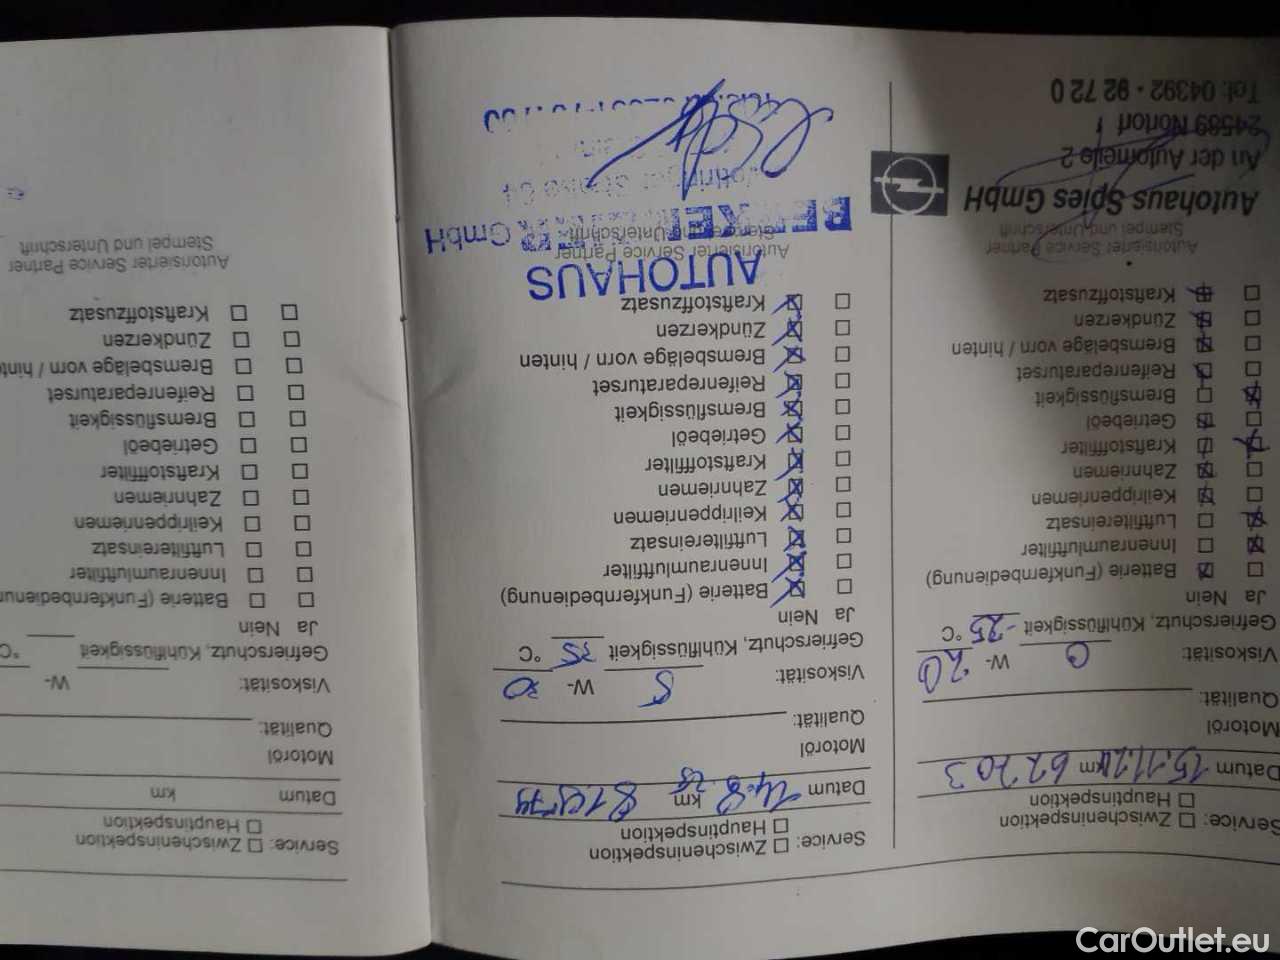 Service: ☐ Zwischeninspektion
☐ Hauptinspektion
Datum 15.11.21 km 62703
Motoröl
Qualität:
Viskosität: 0 W- 20
Gefrierschutz, Kühlflüssigkeit -25 °C
Ja Nein
Batterie (Funkfernbedienung)
Innenraumluftfilter
Luftfiltereinsatz
Keilrippenriemen
Zahnriemen
Kraftstofffilter
Getriebeöl
Bremsflüssigkeit
Reifenreparaturset
Bremsbeläge vorn / hinten
Zündkerzen
Kraftstoffzusatz
Autorisierter Service Partner
Stempel und Unterschrift
Autohaus Spies GmbH
An der Automeile 2
24589 Nortorf
Tel: 04392 - 92 72 0
Service: ☐ Zwischeninspektion
☐ Hauptinspektion
Datum 14.8. km
Motoröl
Qualität:
Viskosität: 5 W- 30
Gefrierschutz, Kühlflüssigkeit 35 °C
Ja Nein
Batterie (Funkfernbedienung)
Innenraumluftfilter
Luftfiltereinsatz
Keilrippenriemen
Zahnriemen
Kraftstofffilter
Getriebeöl
Bremsflüssigkeit
Reifenreparaturset
Bremsbeläge vorn / hinten
Zündkerzen
Kraftstoffzusatz
AUTOHAUS
Autorisierter Service Partner
Stempel und Unterschrift
GmbH
Service: ☐ Zwischeninspektion
☐ Hauptinspektion
Datum km
Motoröl
Qualität:
Viskosität: W-
Gefrierschutz, Kühlflüssigkeit °C
Ja Nein
Batterie (Funkfernbedienun
Innenraumluftfilter
Luftfiltereinsatz
Keilrippenriemen
Zahnriemen
Kraftstofffilter
Getriebeöl
Bremsflüssigkeit
Reifenreparaturset
Bremsbeläge vorn / hint
Zündkerzen
Kraftstoffzusatz
Autorisierter Service Partner
Stempel und Unterschrift
CarOutlet.eu